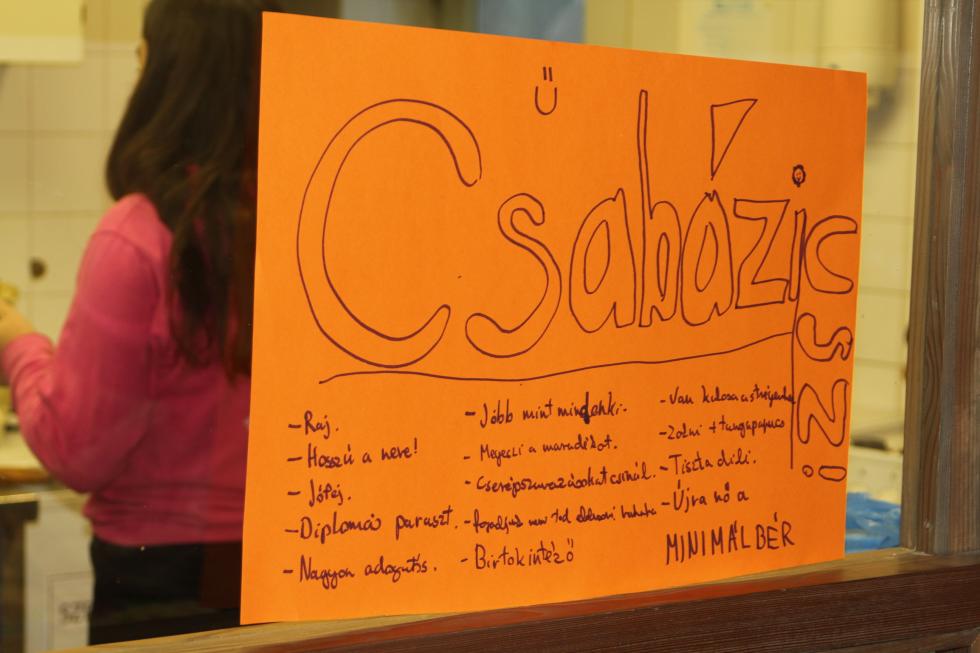 Ü
Csabázic
izsi
- Raj.
- Hosszú a neve!
- Jófej.
- Diplomás paraszt.
- Nagyon adogatós.
- Jobb mint mindenki.
- Megeszi a maradékot.
- Cserépszavazásokat csinál.
- nem tud
- Birtokintéző
- Van kulcsa a
- Zokni + tungapapucs
- Tiszta dili.
- Újra nő a
MINIMÁLBÉR